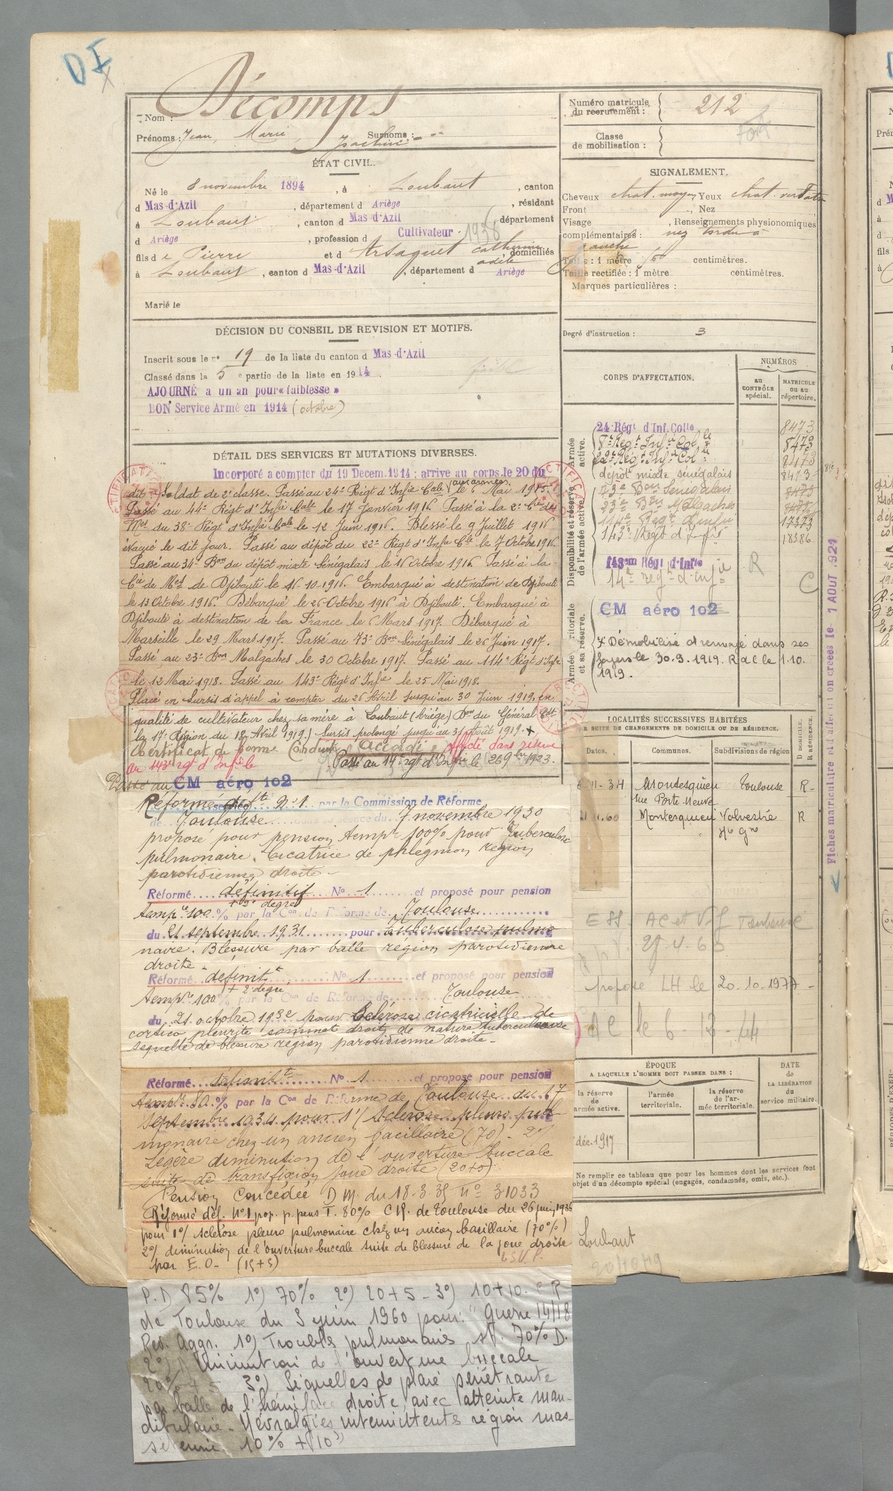 DI
Nom : Décomps
Prénoms : Jean, Marie Surnoms :
ÉTAT CIVIL.
Né le 8 novembre 1894, à Loubaut, canton
d Mas-d'Azil, département d Ariège, résidant
à Loubaut, canton d Mas-d'Azil département
d Ariège, profession d Cultivateur - 1938
fils de Pierre et d Artaguet Catherine domiciliés
à Loubaut, canton d Mas-d'Azil, département d Ariège
Marié le
DÉCISION DU CONSEIL DE REVISION ET MOTIFS.
Inscrit sous le n° 19 de la liste du canton d Mas-d'Azil
Classé dans la 5e partie de la liste en 1914
AJOURNÉ à un an pour « faiblesse »
BON Service Armé en 1914 (octobre)
DÉTAIL DES SERVICES ET MUTATIONS DIVERSES.
Incorporé à compter du 19 Decem. 1914 : arrivé au corps le 20 du
dit, soldat de 2e classe. Passé au 24e Régt d'Infie Cole le 6 Mai 1915
Passé au 44e Régt d'Infie Colle le 17 Janvier 1916. Passé à la 2e Cie de
Mses du 38e Régt d'Infie Cole le 12 Juin 1916. Blessé le 9 Juillet 1916
évacué le dit jour. Passé au dépôt du 22e Régt d'Infie Cle le 7 Octobre 1916
Passé au 34e Bon du dépôt mixte Sénégalais le 16 Octobre 1916. Passé à la
Cie de Mses de Djibouti le 16.10.1916. Embarqué à destination de Djibouti
le 13 Octobre 1916. Débarqué le 26 Octobre 1916 à Djibouti. Embarqué à
Djibouti à destination de la France le 6 Mars 1917. Débarqué à
Marseille le 29 Mars 1917. Passé au 73e Bon Sénégalais le 25 Juin 1917.
Passé au 23e Bon Malgaches le 30 Octobre 1917. Passé au 114e Régt d'Infie
le 12 Mai 1918. Passé au 143e Régt d'Infie le 25 Mai 1918.
Placé en sursis d'appel à compter du 26 Avril jusqu'au 30 Juin 1919, en
qualité de cultivateur chez sa mère à Loubaut (Ariège) Don du Général Ct
la 17e Région du 18 Avril 1919) Sursis prolongé jusqu'au 31 Août 1919 +
Certificat de bonne Conduite "accordé" Affecté dans réserve
au 143e régt d'Infie le Passé au 14e régt d'Infie le 1923.
CM aéro 102
Réformé déft N° 1 par la Commission de Réforme
de Toulouse du 7 novembre 1930
proposé pour pension tempre 100% pour Tuberculose
pulmonaire. Cicatrice de phlegmon région
parotidienne droite
Réformé définitif N° 1 et proposé pour pension
tempre 100 % par la Con de Réforme de Toulouse
+ 2e degré
du 21 septembre 1931 pour Tuberculose pulmo
naire. Blessure par balle région parotidienne
droite.
Réformé définitt N° 1 et proposé pour pension
tempre 100 % par la Con de Réforme de Toulouse
+ 2 degré
du 21 octobre 1932 pour Sclérose cicatricielle de
cortico pleurite sommet droit, de nature tuberculeuse
Séquelle de blessure région parotidienne droite -
Réformé définitt N° 1 et proposé pour pension
tempre 80 % par la Con de Réforme de Toulouse du 17
Septembre 1934 pour 1°/ Sclérose pleuro pul
monaire chez un ancien bacillaire (70) - 2°
Légère diminution de l'ouverture buccale
suite de transfixion joue droite (20+0)
Pension Concédée D M. du 18-3-35 N° 31033
Réformé déf. N° 1 prop. p. pens T. 80% CR. de Toulouse du 26 juin 1936
pour 1°/ sclérose pleuro pulmonaire chez un ancien bacillaire (70%)
2°/ diminution de l'ouverture buccale suite de blessure de la joue droite
par E.O- (15+5)
P.D 85% 1°) 70% 2°) 20+5 - 3°) 10+10. C R
de Toulouse du 3 juin 1960 pour "Guerre 14/18
Res. Aggr. 1°) Troubles pulmonaires 70% D.
2°) Diminution de l'ouverture buccale
20% 3°) Séquelles de plaie pénétrante
par balle de l'hémiface droite, avec atteinte man-
dibulaire - Névralgies intermittentes région mas-
séterine 10% + 10
Numéro matricule du recrutement : 212
Classe de mobilisation :
SIGNALEMENT.
Cheveux chat. moyen Yeux chat. verdâtre
Front , Nez
Visage , Renseignements physionomiques
complémentaires : nez tordu à
gauche
Taille : 1 mètre 60 centimètres.
Taille rectifiée : 1 mètre centimètres.
Marques particulières :
Degré d'instruction : 3
CORPS D'AFFECTATION.
NUMÉROS
AU CONTRÔLE spécial.
MATRICULE OU AU répertoire.
Armée active.
24 Régt d'Inf. Colle 8473
8e Régt Infie Col. le 8473
22e Régt Infie Col. 8473
dépôt mixte sénégalais 8473
73e Bon Sénégalais 8473
23e Bon Malgaches 8473
114e Régt d'Infie 17373
143e Régt d'Infie 18386
Disponibilité et réserve de l'armée active.
143me Régt d'Infie R
14e régt d'Infie C
CM aéro 102
Armée territoriale et sa réserve.
X Démobilisé et renvoyé dans ses
foyers le 30.9.1919. R d C le 1.10.
1919.
Fiches matricules et d'affectation créées le 1 AOUT 1924
LOCALITÉS SUCCESSIVES HABITÉES
PAR SUITE DE CHANGEMENTS DE DOMICILE OU DE RÉSIDENCE.
Dates. Communes. Subdivisions de région D DOMICILE. R RÉSIDENCE.
11-34 Montesquieu Toulouse R-
rue Porte Neuve
1.60 Montesquieu Volvestre R
Hte Gne
ESS. AC et VG Toulouse
29-4-63
Proposé LH le 20.10.1977-
le 6-12-44
ÉPOQUE
À LAQUELLE L'HOMME DOIT PASSER DANS :
la réserve de l'armée active.
l'armée territoriale.
la réserve de l'armée territoriale.
DATE de LA LIBÉRATION du service militaire.
déc. 1917
Ne remplir ce tableau que pour les hommes dont les services font
l'objet d'un décompte spécial (engagés, condamnés, omis, etc.)
Loubaut